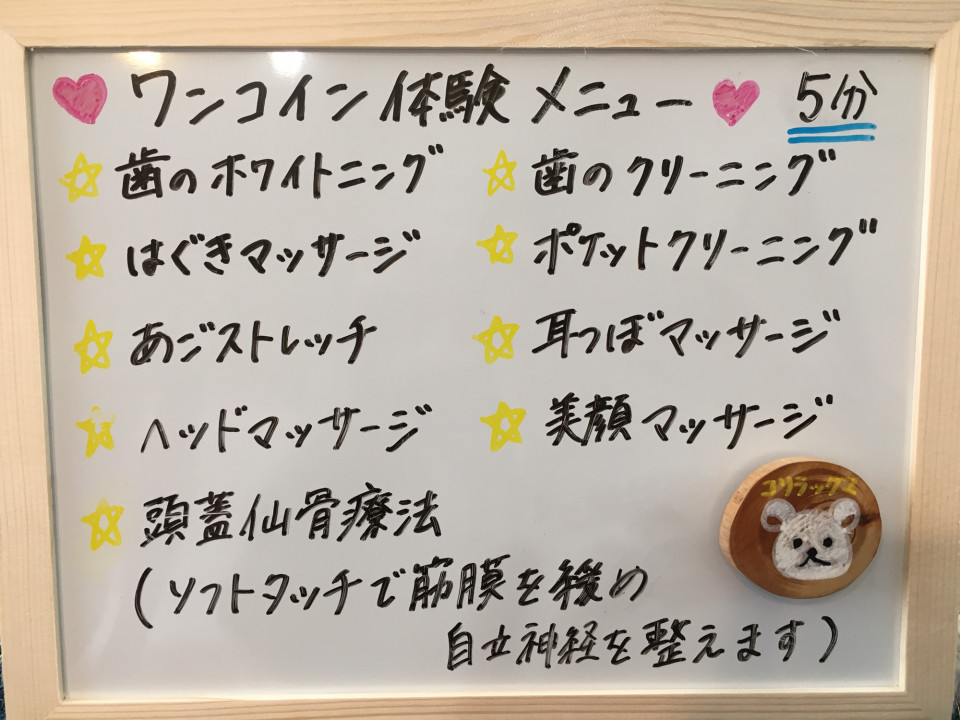 ワンコイン体験メニュー 5分
歯のホワイトニング
歯のクリーニング
はぐきマッサージ
ポケットクリーニング
あごストレッチ
耳つぼマッサージ
ヘッドマッサージ
美顔マッサージ
頭蓋仙骨療法
(ソフトタッチで筋膜を緩め
自立神経を整えます)
コリラックマ